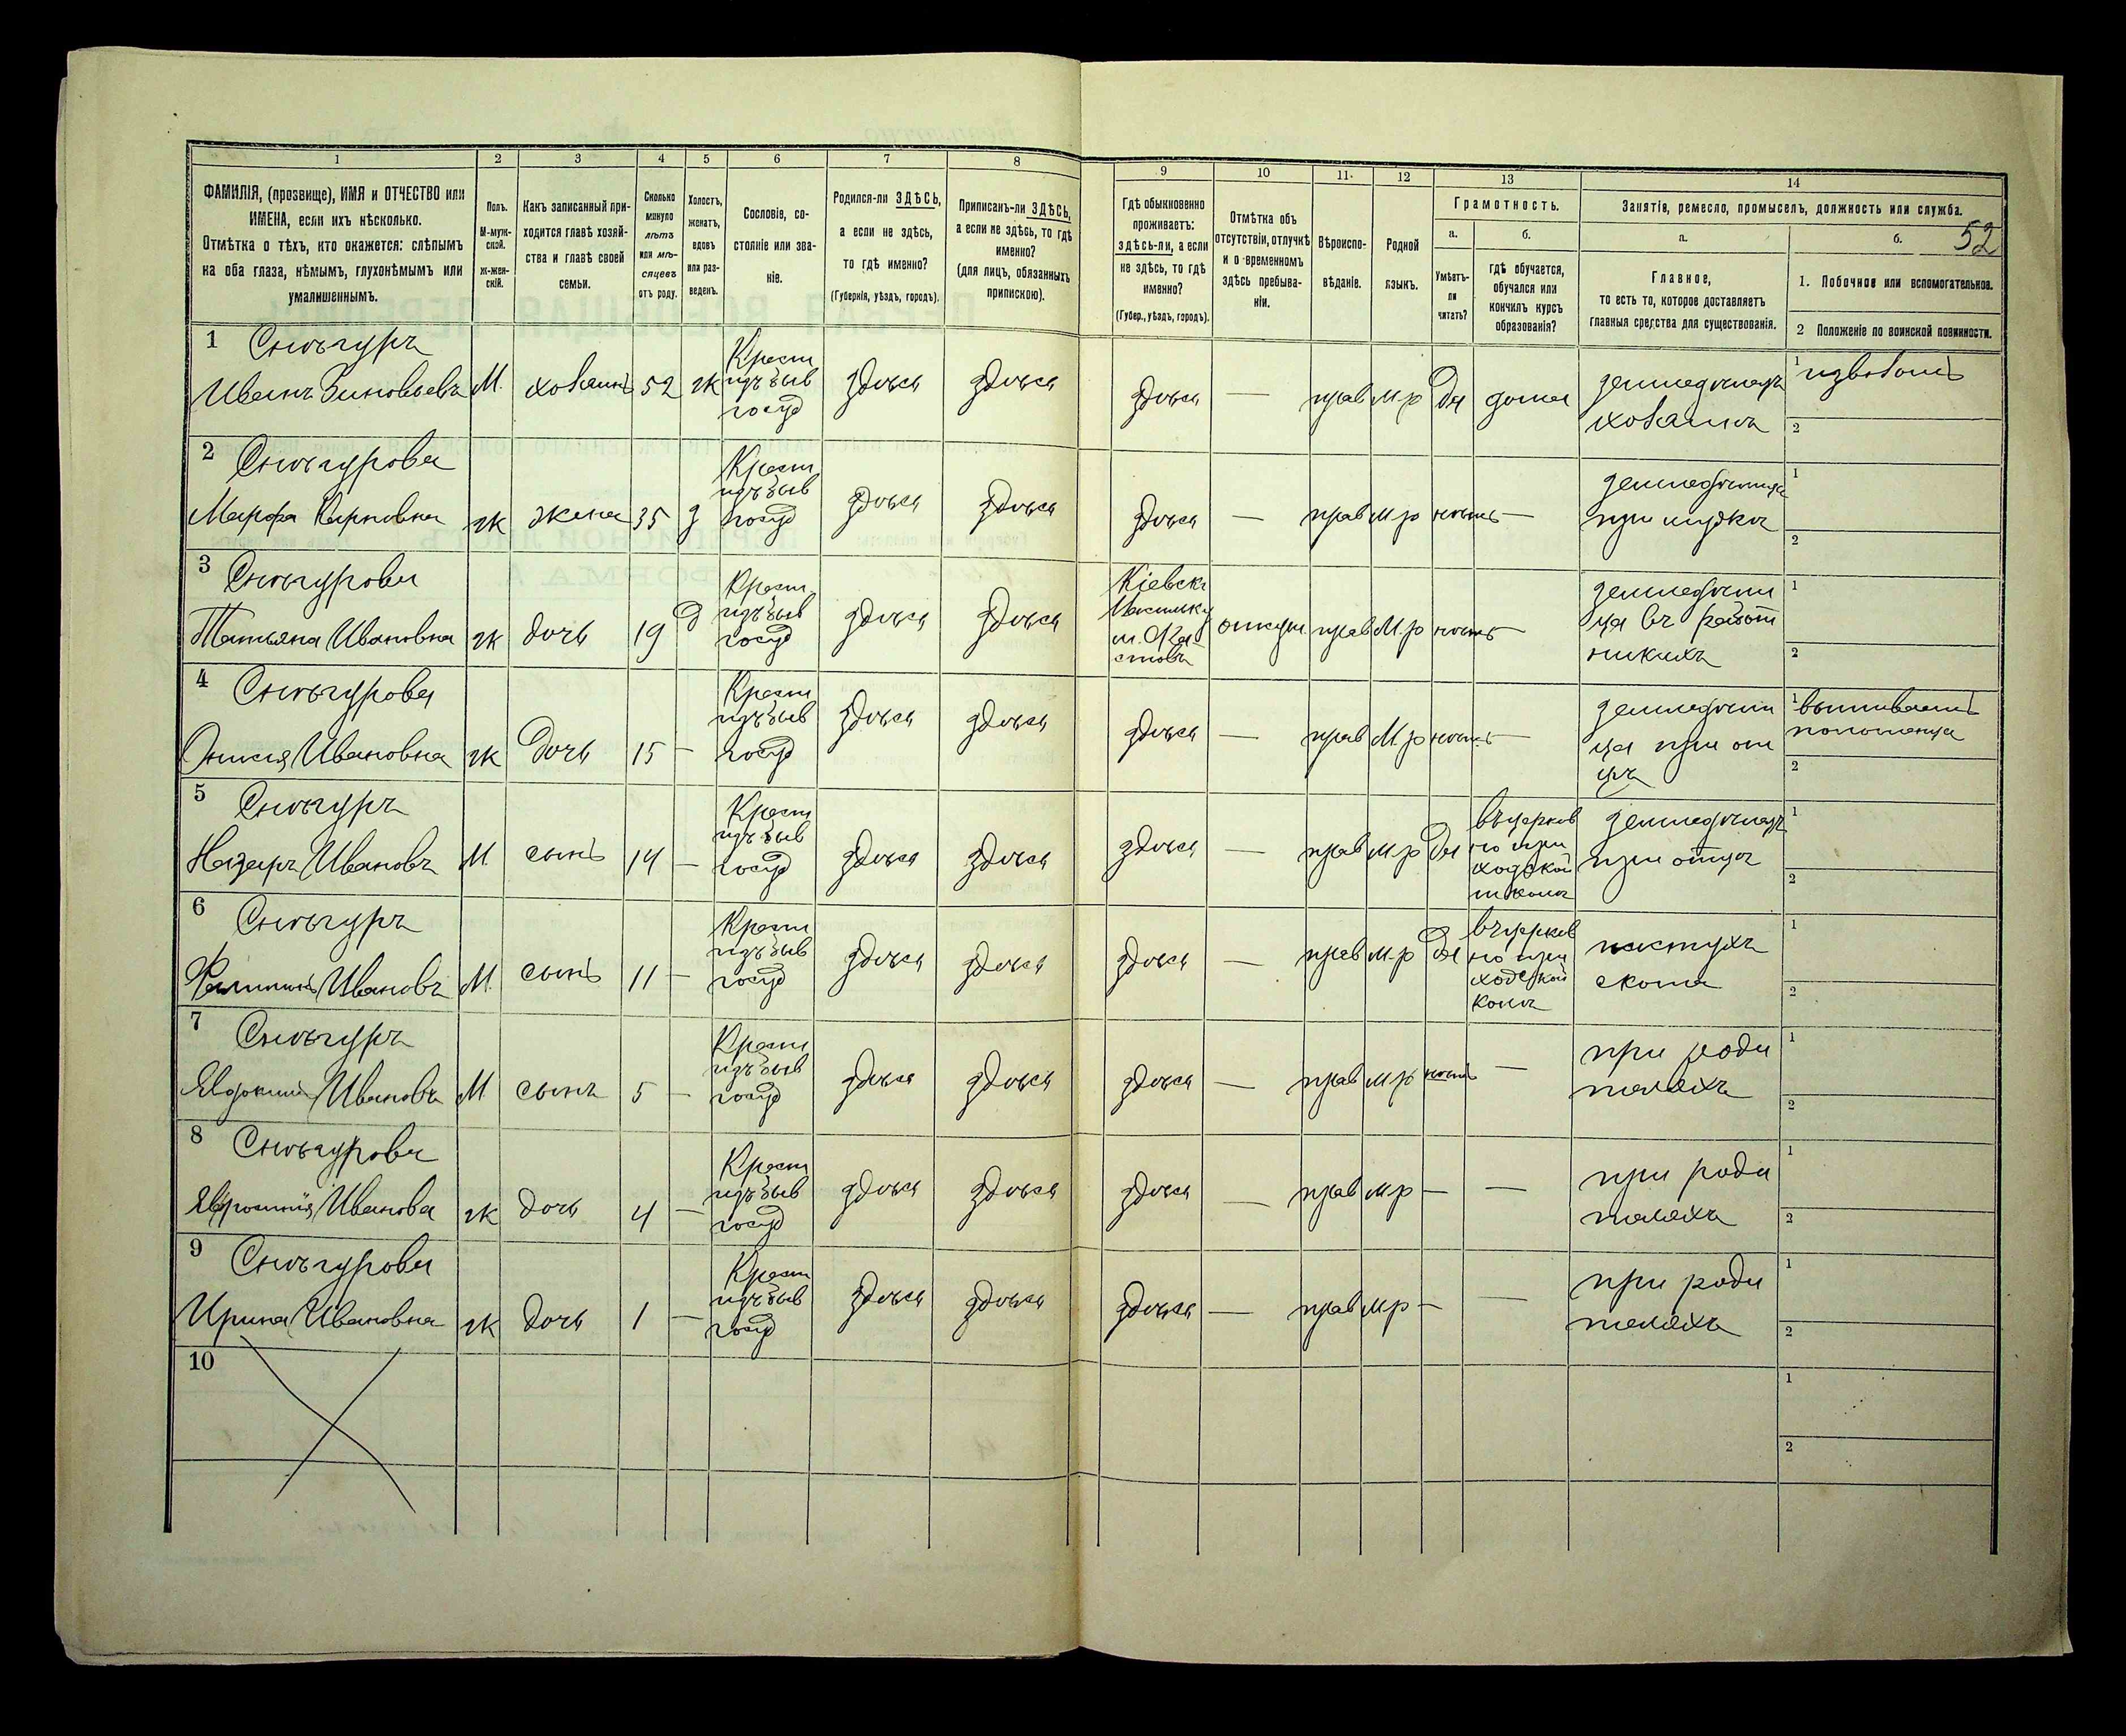 1 2 3 4 5 6 7 8 9 10 11 12 13 14
52
ФАМИЛІЯ, (прозвище), ИМЯ и ОТЧЕСТВО или
ИМЕНА, если ихъ нѣсколько.
Отмѣтка о тѣхъ, кто окажется: слѣпымъ
на оба глаза, нѣмымъ, глухонѣмымъ или
умалишеннымъ.
Полъ.
М-муж-
ской.
ж-жен-
скій.
Какъ записанный при-
ходится главѣ хозяй-
ства и главѣ своей
семьи.
Сколько
минуло
лѣтъ
или мѣ-
сяцевъ
отъ роду.
Холостъ,
женатъ,
вдовъ
или раз-
веденъ.
Сословіе, со-
стояніе или зва-
ніе.
Родился-ли ЗДѢСЬ,
а если не здѣсь,
то гдѣ именно?
(Губернія, уѣздъ, городъ).
Приписанъ-ли ЗДѢСЬ,
а если не здѣсь, то гдѣ
именно?
(для лицъ, обязанныхъ
припискою).
Гдѣ обыкновенно
проживаетъ:
здѣсь-ли, а если
не здѣсь, то гдѣ
именно?
(Губер., уѣздъ, городъ).
Отмѣтка объ
отсутствіи, отлучкѣ
и о временномъ
здѣсь пребыва-
ніи.
Вѣроиспо-
вѣданіе.
Родной
языкъ.
Грамотность.
а.
Умѣетъ-
ли
читать?
б.
гдѣ обучается,
обучался или
кончилъ курсъ
образованія?
Занятіе, ремесло, промыселъ, должность или служба.
а.
Главное,
то есть то, которое доставляетъ
главныя средства для существованія.
б.
1. Побочное или вспомогательное.
2 Положеніе по воинской повинности.
1 Снѣгуръ
Иванъ Зиновьевъ М. хозаинъ 52 ж
Крест
изъ быв
госуд
здѣся здѣся здѣся — прав м.р да дома
земледѣлецъ
хозаинъ
1 извозомъ
2
2 Снѣгурова
Марфа Карповна ж жена 35 з
Крест
изъ быв
госуд
здѣся здѣся здѣся — прав м р нѣтъ —
земледѣлица
при мужѣ
1
2
3 Снѣгурова
Татьяна Ивановна ж дочь 19 д
Крест
изъ быв
госуд
здѣся здѣся
Кіевск
отсут прав М.р нѣтъ —
земледѣли
ца въ работ
никахъ
1
2
4 Снѣгурова
Онисія Ивановна ж дочь 15 —
Крест
изъ быв
госуд
здѣся здѣся здѣся — прав М.р нѣтъ —
земледѣли
ца при от
цѣ
1 вышиваетъ
полотенца
2
5 Снѣгуръ
Назаръ Ивановъ М. сынъ 14 —
Крест
изъ быв
госуд
здѣся здѣся здѣся — прав м.р да
въ церков
но при
ходской
школѣ
земледѣлецъ
при отцѣ
1
2
6 Снѣгуръ
Филиппъ Ивановъ М. сынъ 11 —
Крест
изъ быв
госуд
здѣся здѣся здѣся — прав м.р да
въ церков
но при
ходской
колѣ
пастухъ
скота
1
2
7 Снѣгуръ
Явдокимъ Ивановъ М сынъ 5 —
Крест
изъ быв
госуд
здѣся здѣся здѣся — прав м.р нѣтъ —
при роди
теляхъ
1
2
8 Снѣгурова
Явфросинія Иванова ж дочь 4 —
Крест
изъ быв
госуд
здѣся здѣся здѣся — прав м р — —
при роди
теляхъ
1
2
9 Снѣгурова
Ирина Ивановна ж дочь 1 —
Крест
изъ быв
госуд
здѣся здѣся здѣся — прав м р — —
при роди
теляхъ
1
2
10
1
2